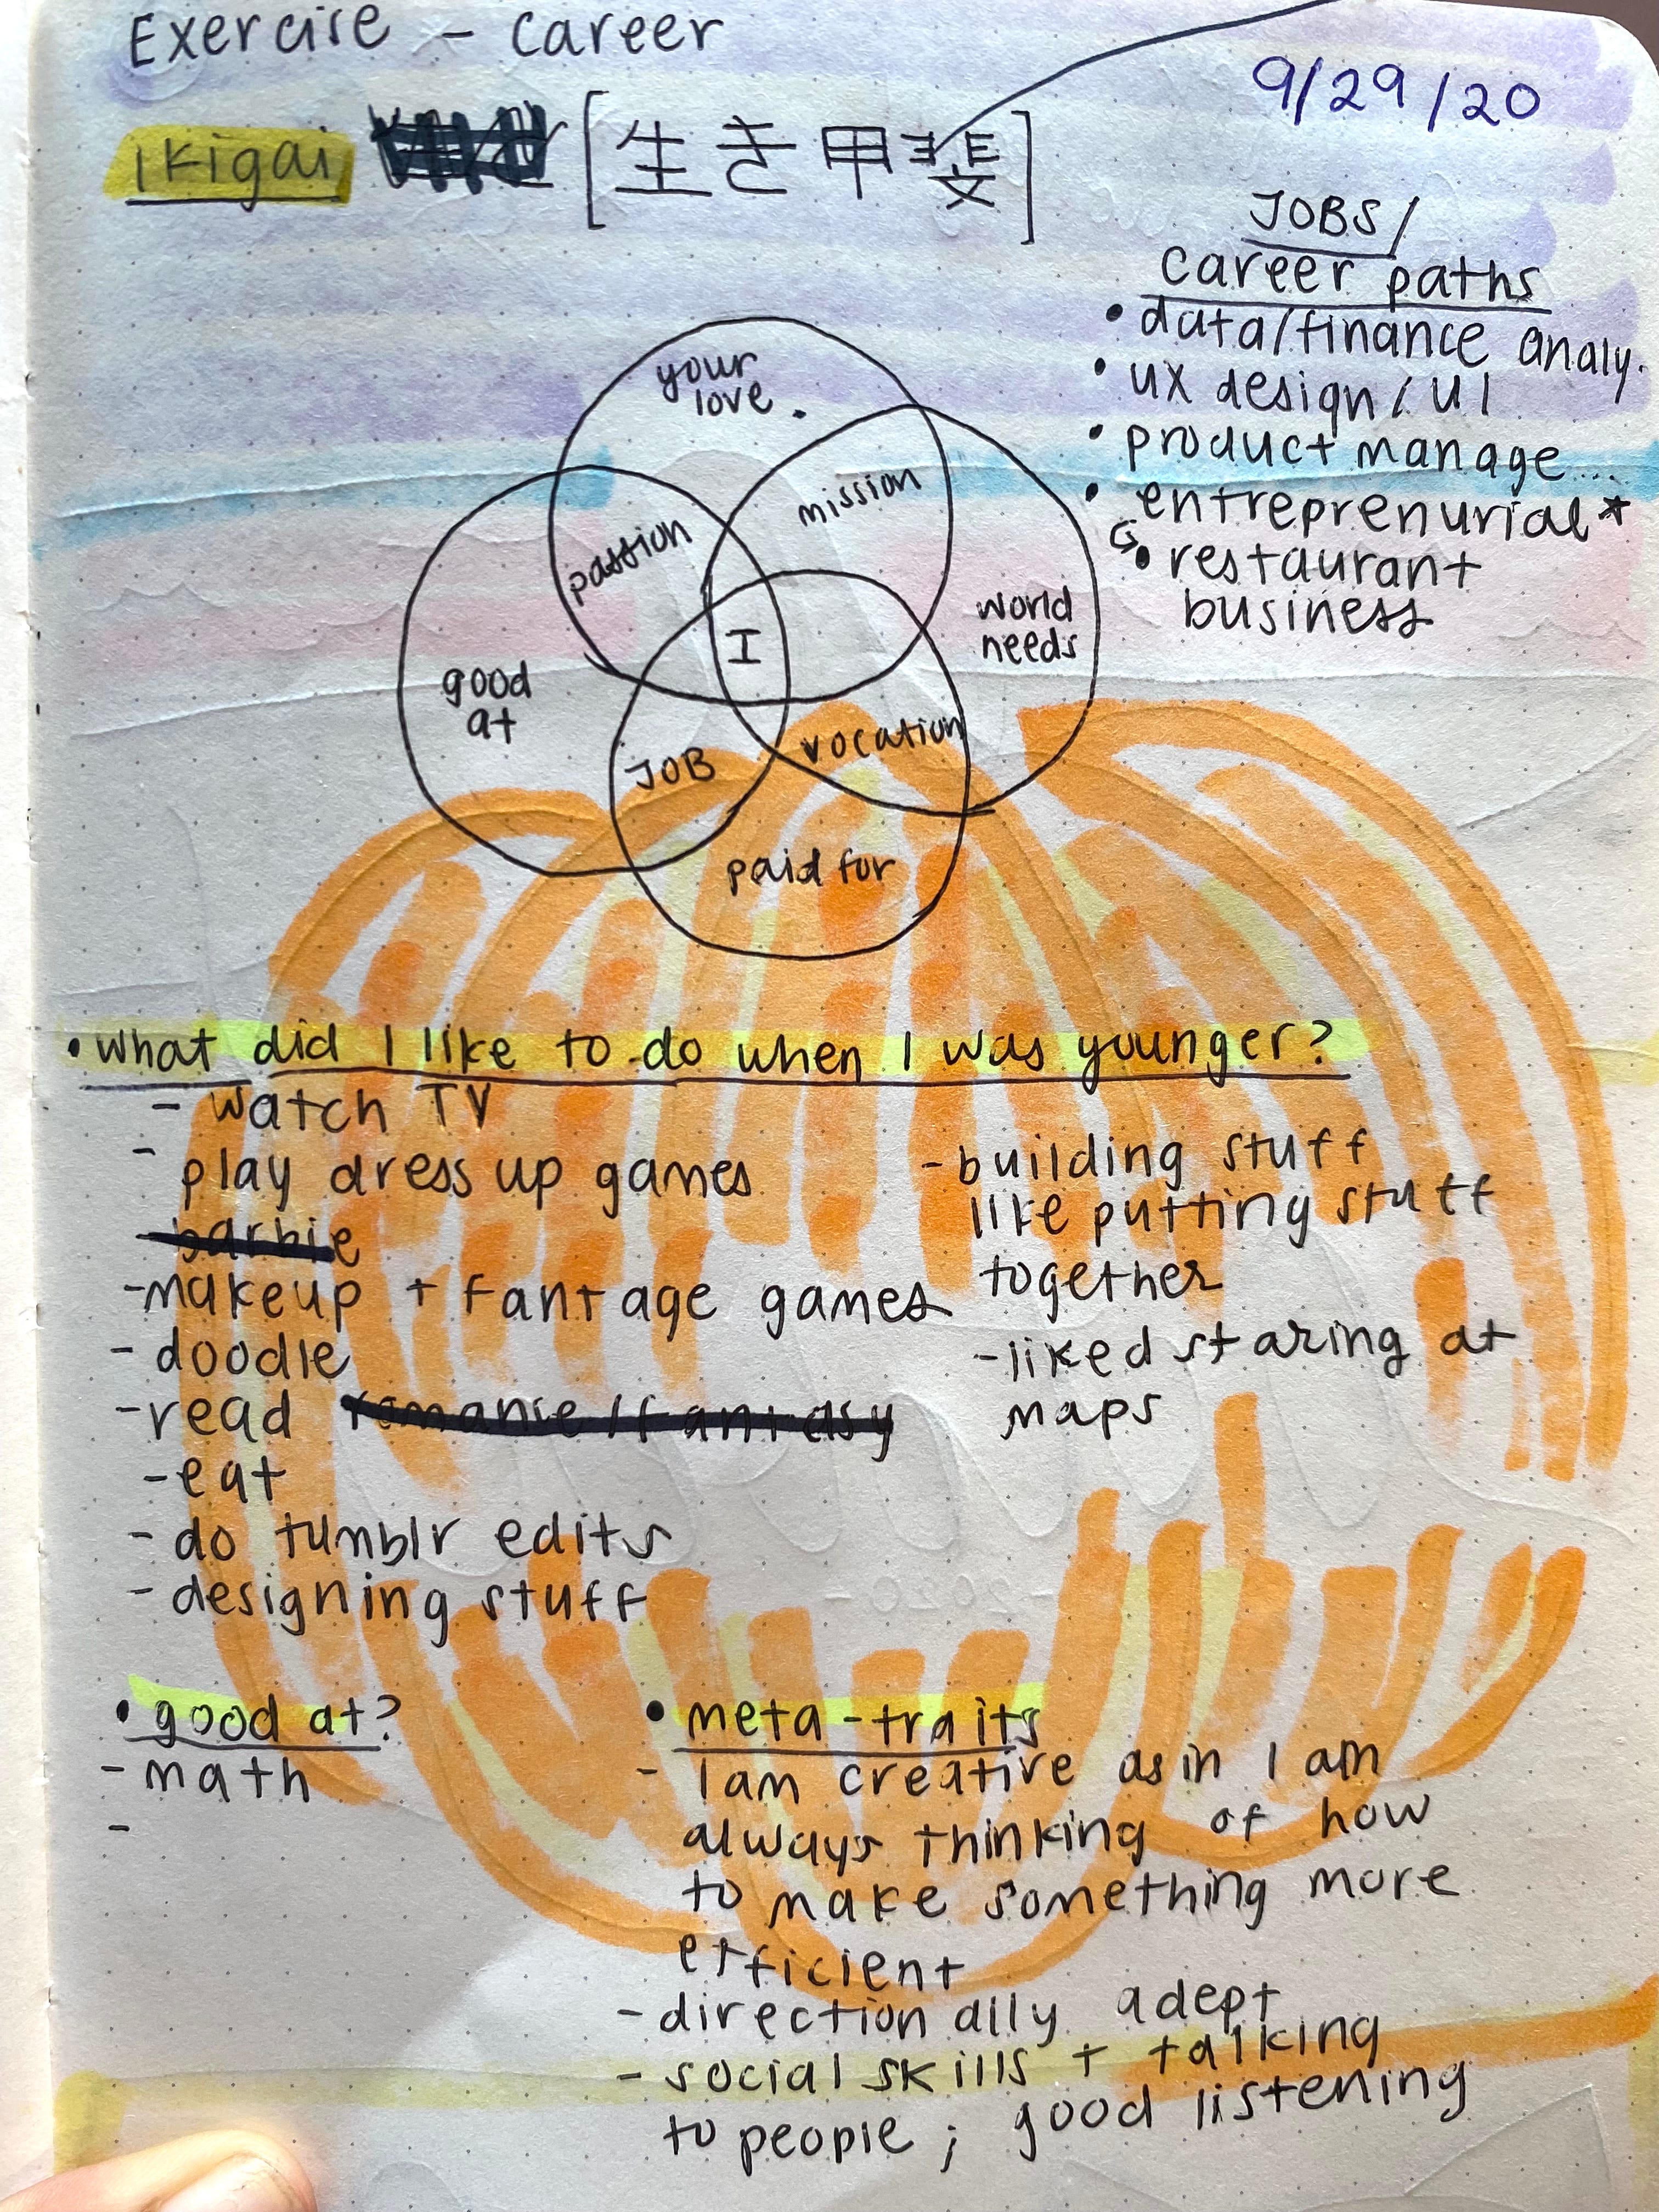 Exercise - career
9/29/20
Ikigai [生き甲斐]
JOBS/
career paths
• data/finance analy.
• UX design / UI
• product manage...
• entreprenurial*
• restaurant
business
your
love.
mission
passion
world
needs
I
good
at
JOB
vocation
paid for
• What did I like to do when I was younger?
- Watch TV
- play dress up games
- barbie
- makeup + fantage games
- doodle
- read romance/fantasy
- eat
- do tumblr edits
- designing stuff
- building stuff
like putting stuff
together
- liked staring at
maps
• good at?
- math
-
• meta-traits
- I am creative as in I am
always thinking of how
to make something more
efficient
- directionally adept
- social skills + talking
to people; good listening